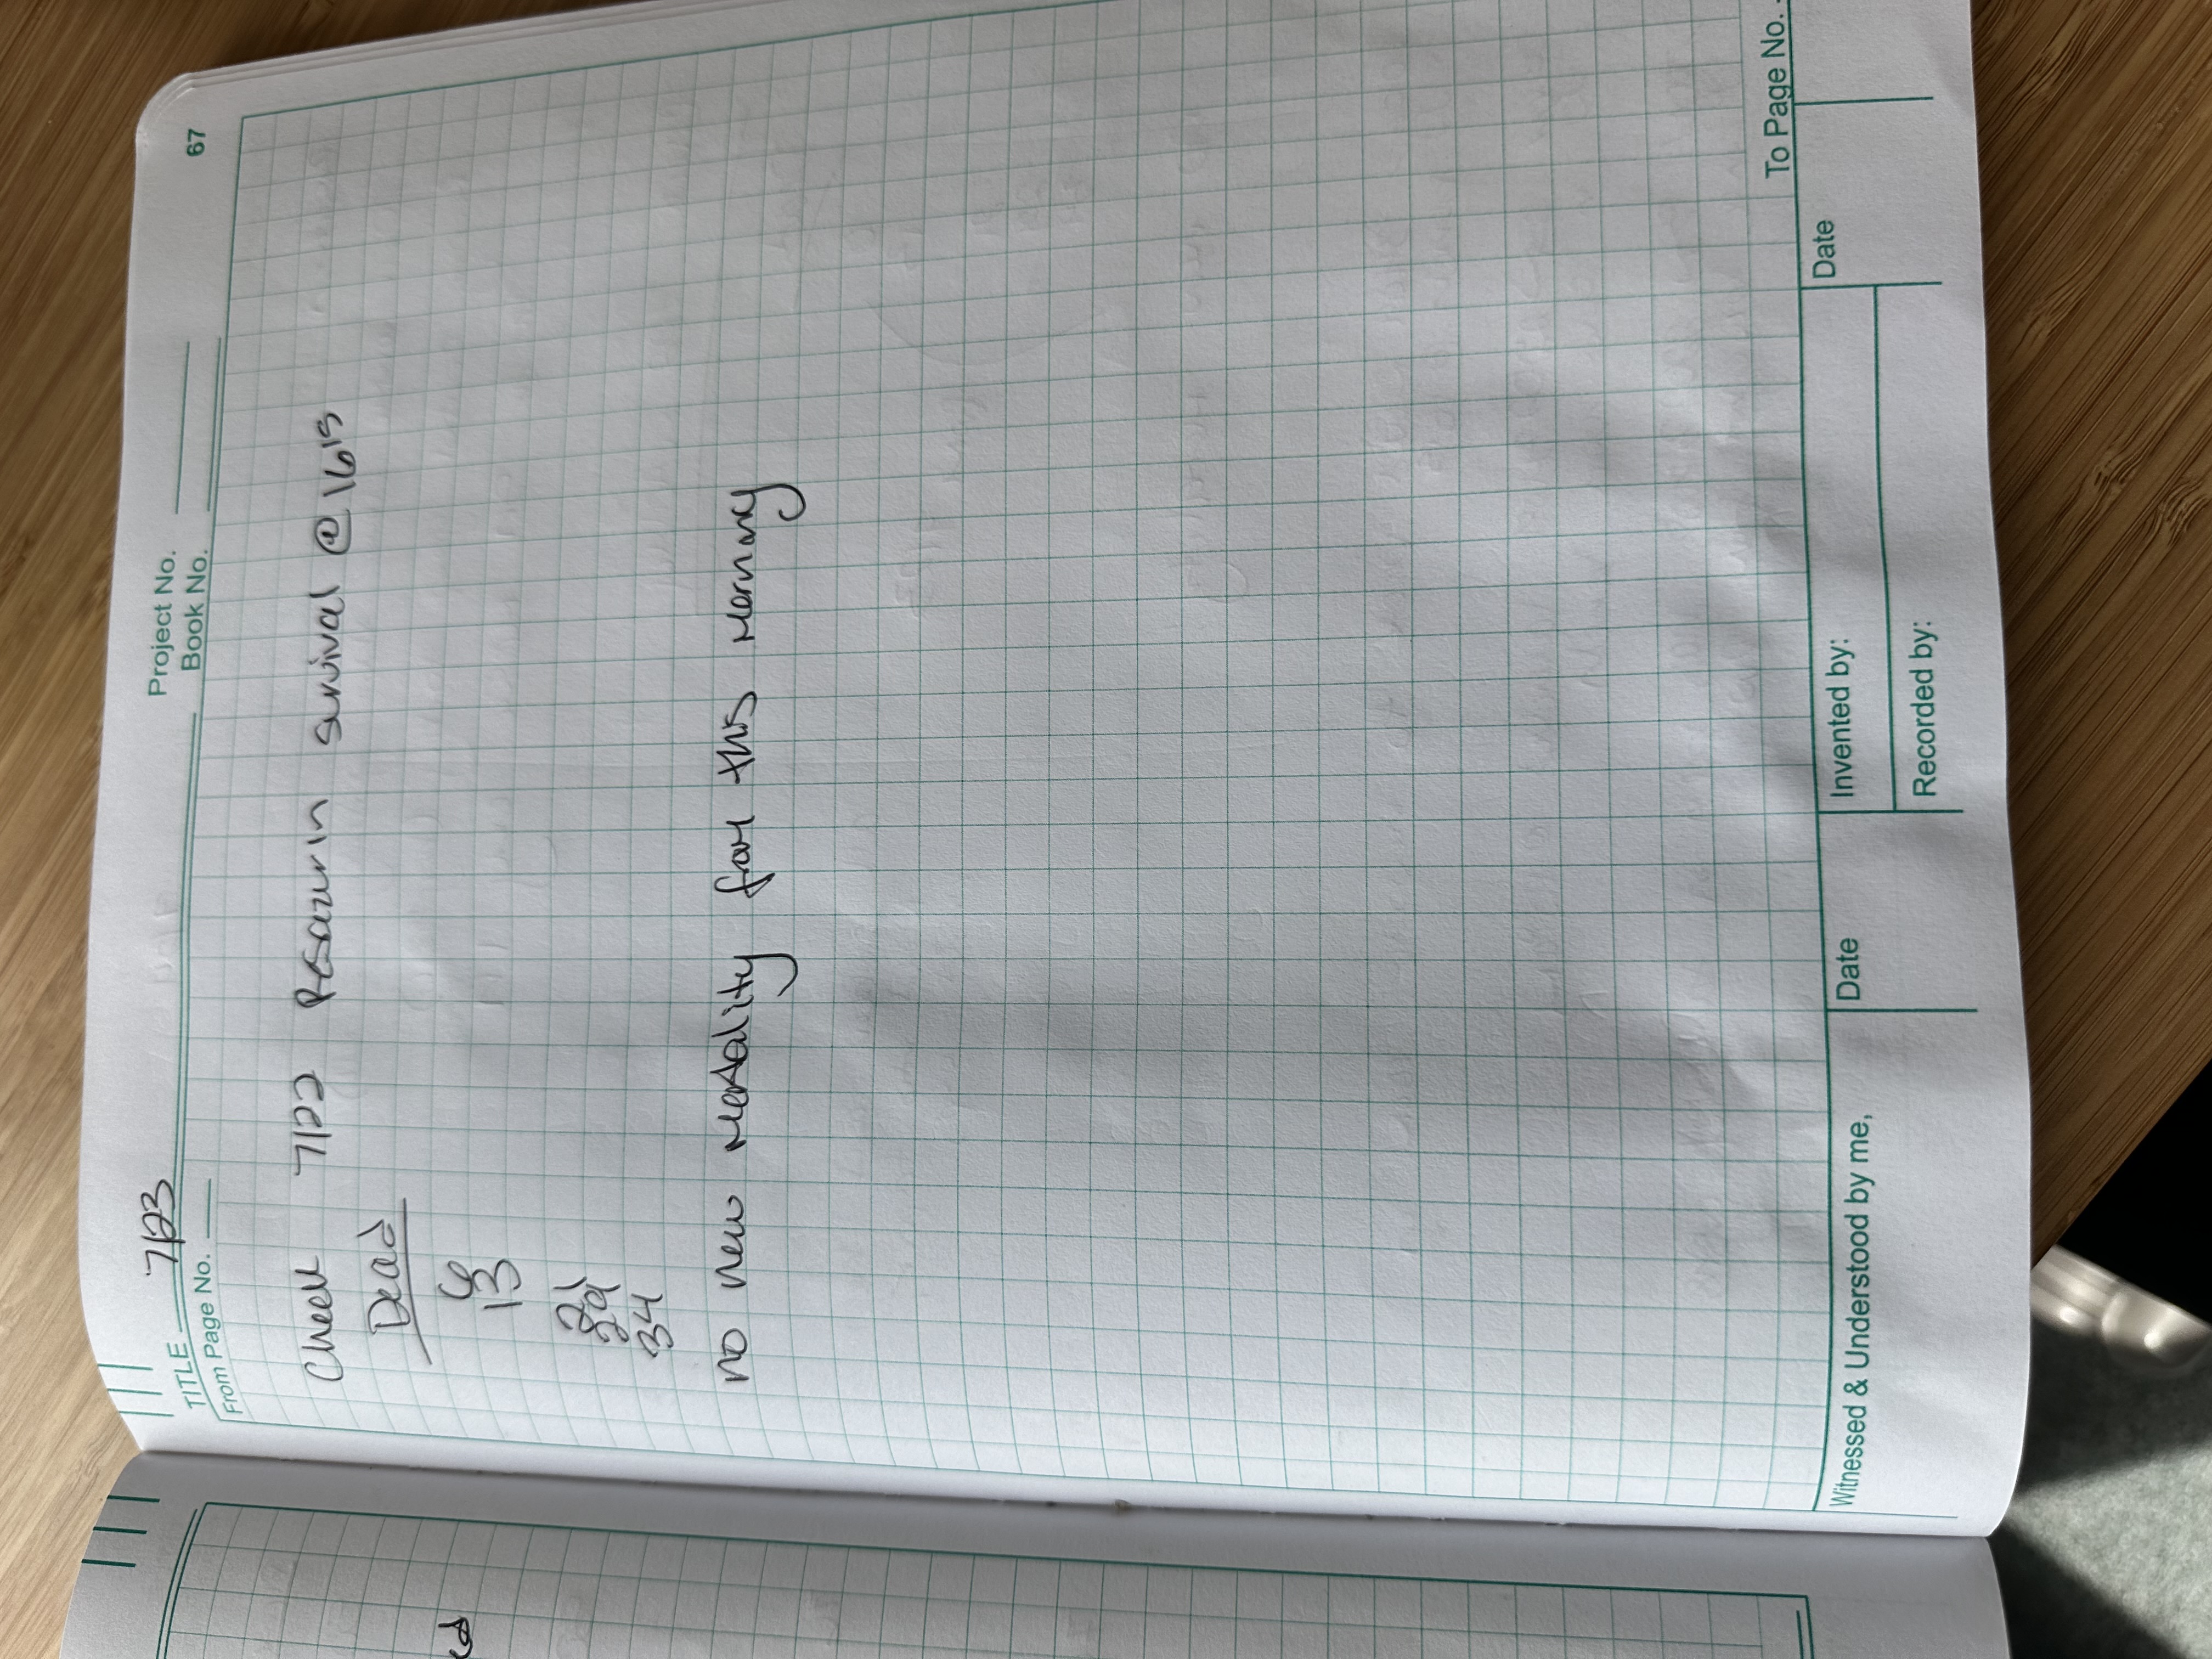 TITLE 7/23
Project No.
Book No.
67
From Page No.
Check 7/22 Resazurin survival @ 1615
Dead
6
13
21
29
34
no new mortality from this morning
To Page No.
Witnessed & Understood by me,
Date
Invented by:
Date
Recorded by: